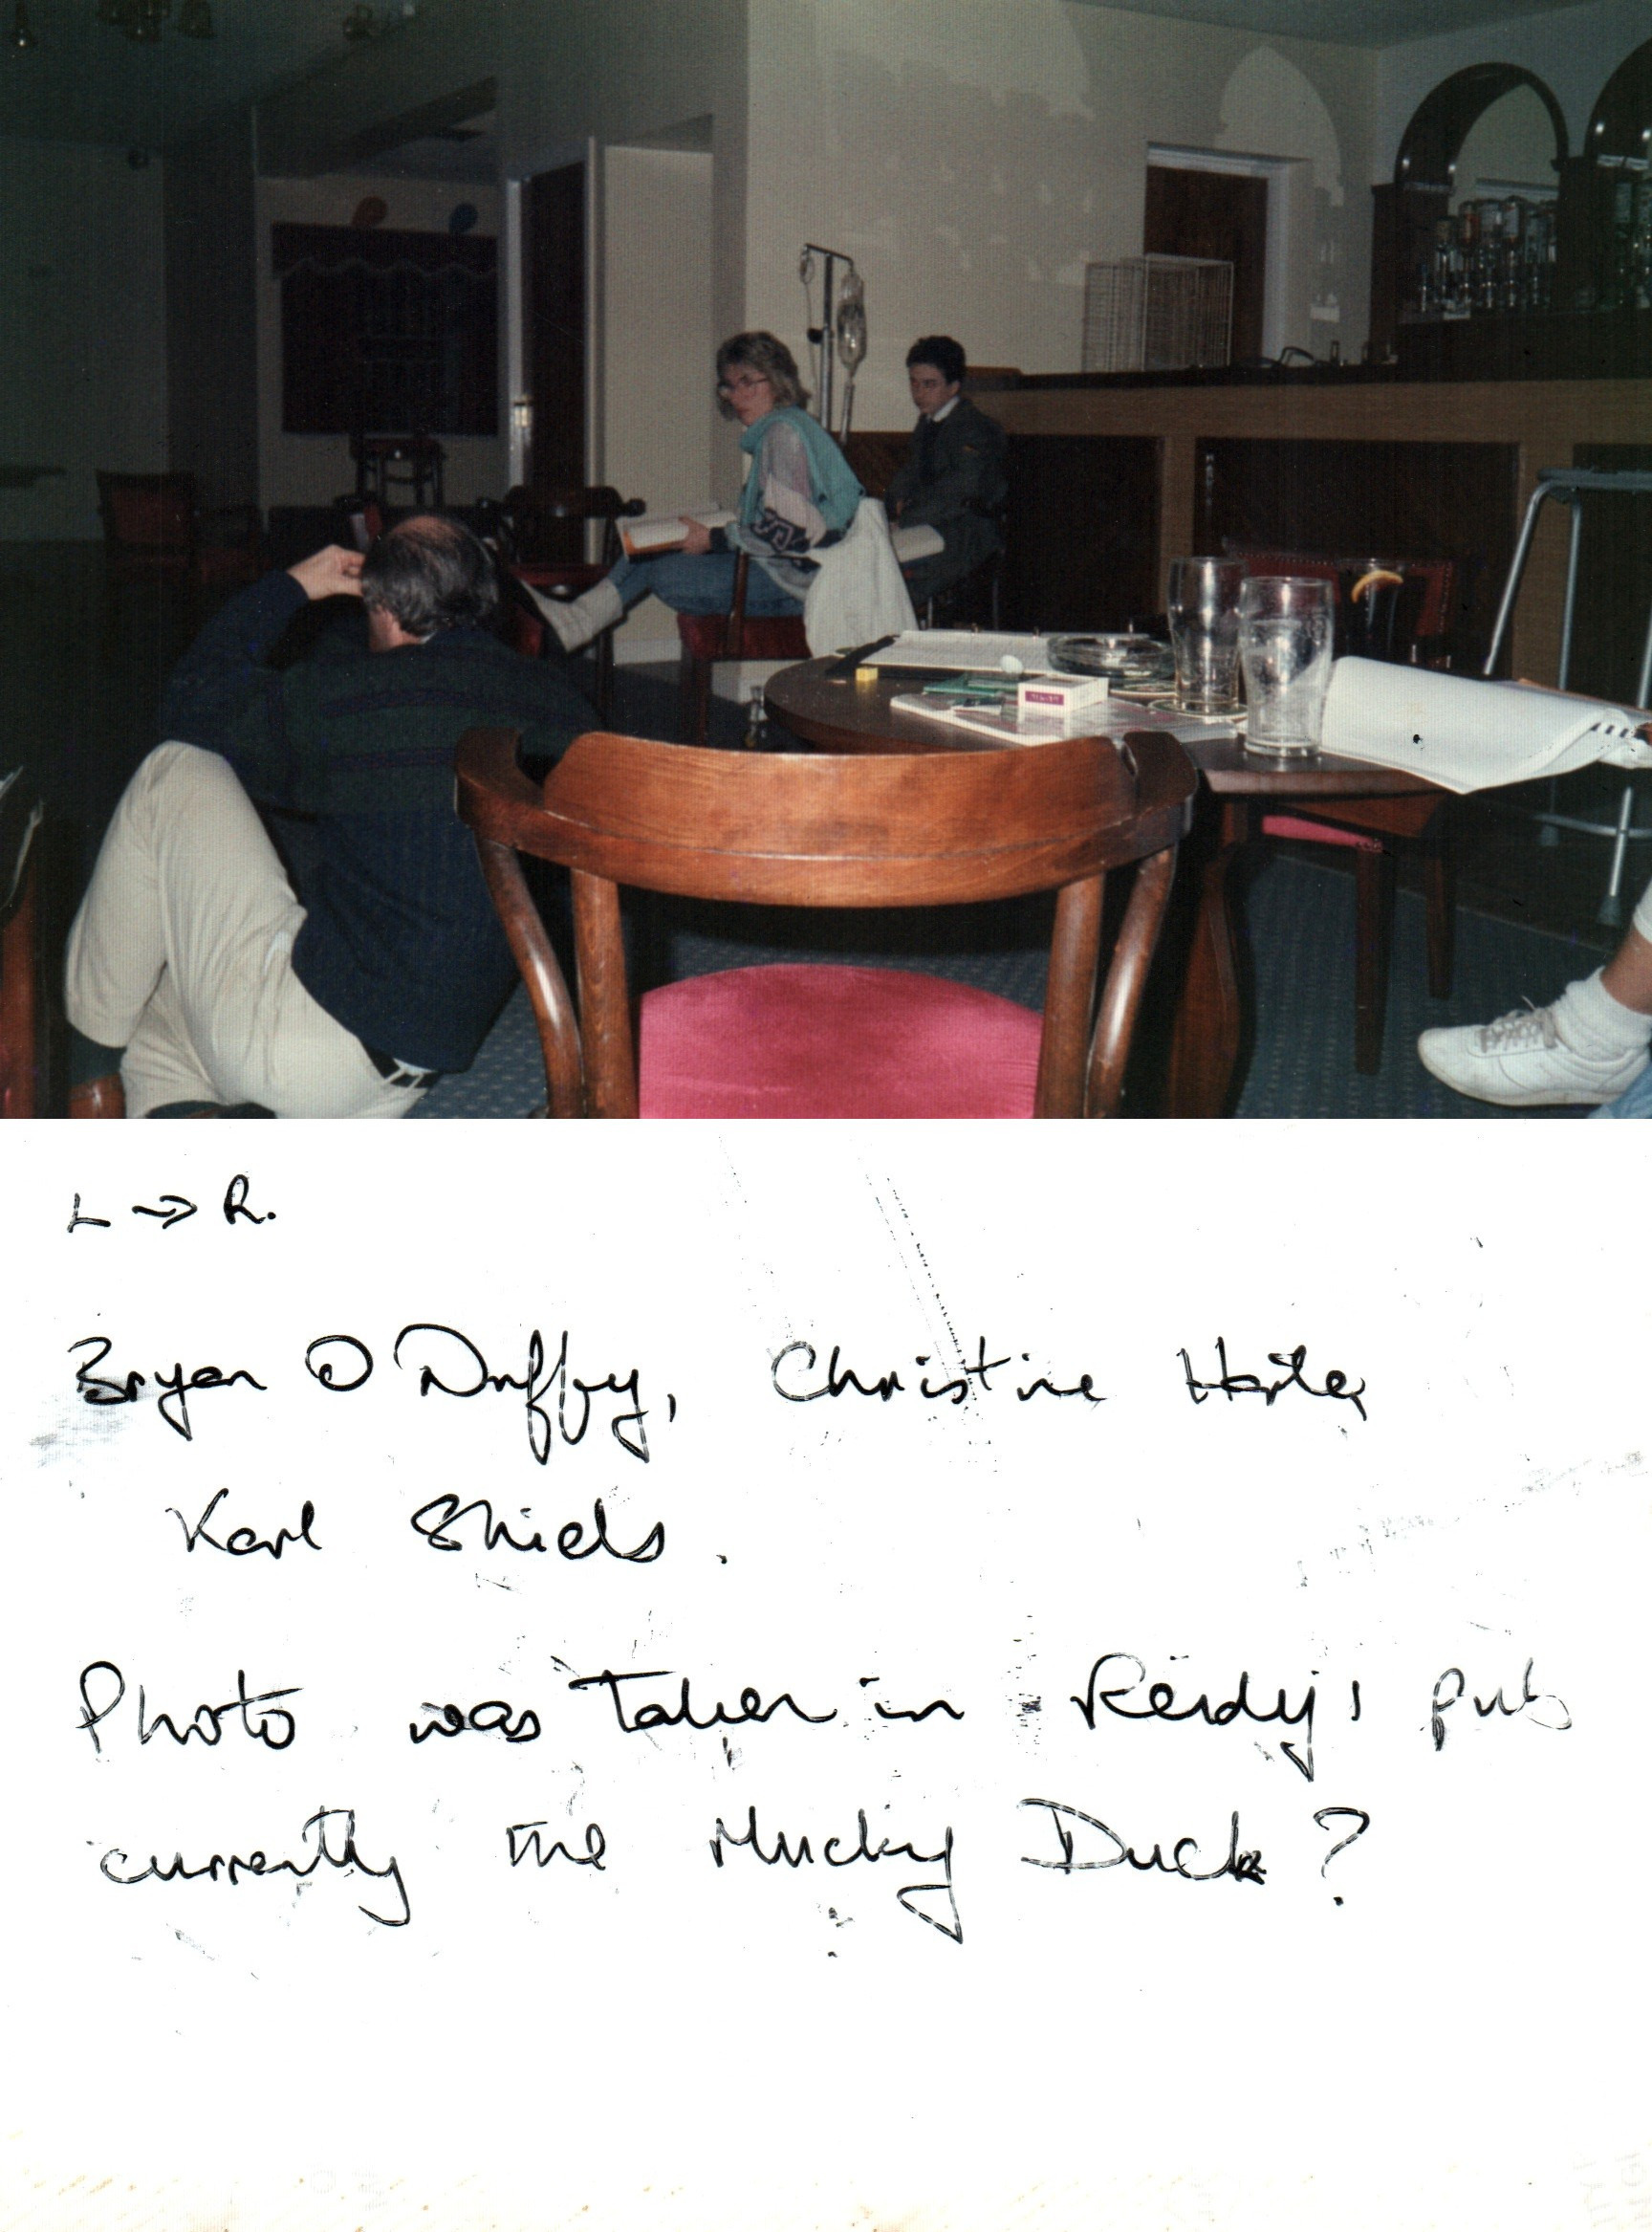 L → R.
Bryan O Duffy, Christine
Karl Shiels.
Photo was taken in Reidy's pub
currently the Mucky Duck?